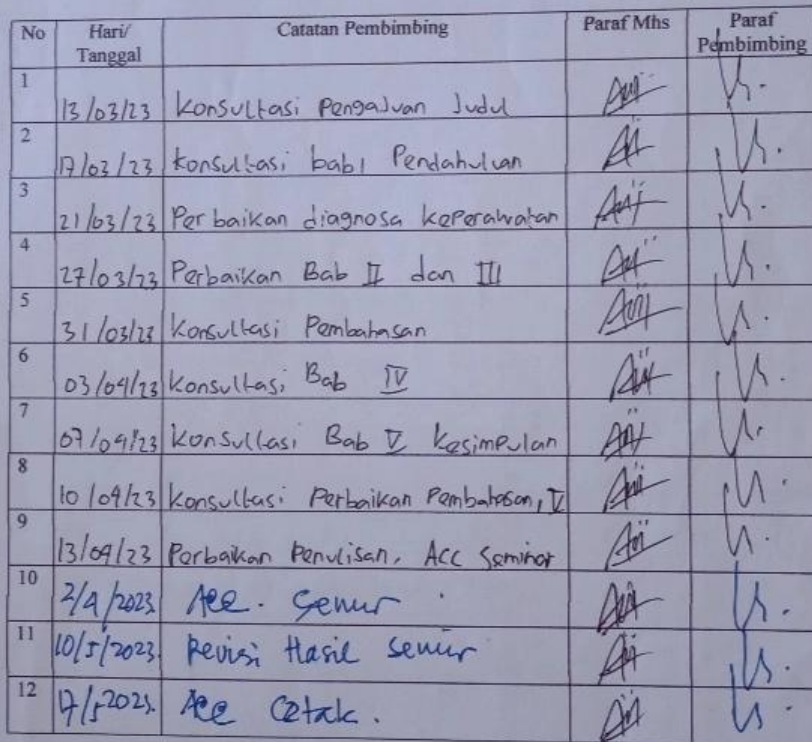 No Hari/ Tanggal Catatan Pembimbing Paraf Mhs Paraf Pembimbing
1 13/03/23 Konsultasi Pengajuan Judul
2 17/03/23 Konsultasi bab 1 Pendahuluan
3 21/03/23 Perbaikan diagnosa keperawatan
4 27/03/23 Perbaikan Bab II dan III
5 31/03/23 Konsultasi Pembahasan
6 03/04/23 Konsultasi Bab IV
7 07/04/23 Konsultasi Bab V Kesimpulan
8 10/04/23 Konsultasi Perbaikan Pembahasan, V
9 13/04/23 Perbaikan Penulisan, Acc Seminar
10 2/4/2023. Acc.
11 10/5/2023. Revisi Hasil
12 17/5 2023. Acc Cetak.